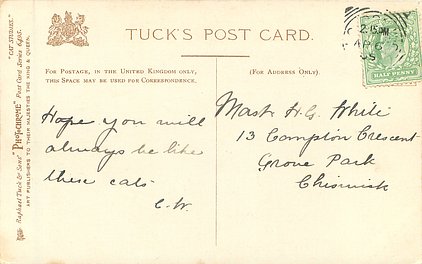 TUCK'S POST CARD.
FOR POSTAGE, IN THE UNITED KINGDOM ONLY,
THIS SPACE MAY BE USED FOR CORRESPONDENCE.
(FOR ADDRESS ONLY.)
"CAT STUDIES."
Raphael Tuck & Sons' "PHOTOCHROME" Post Card Series 6405.
ART PUBLISHERS TO THEIR MAJESTIES THE KING & QUEEN.
Hope you will
always be like
these cats
C.W.
Mastr H.G. White
13 Compton Crescent
Grove Park
Chiswick
2.15PM
HALF PENNY